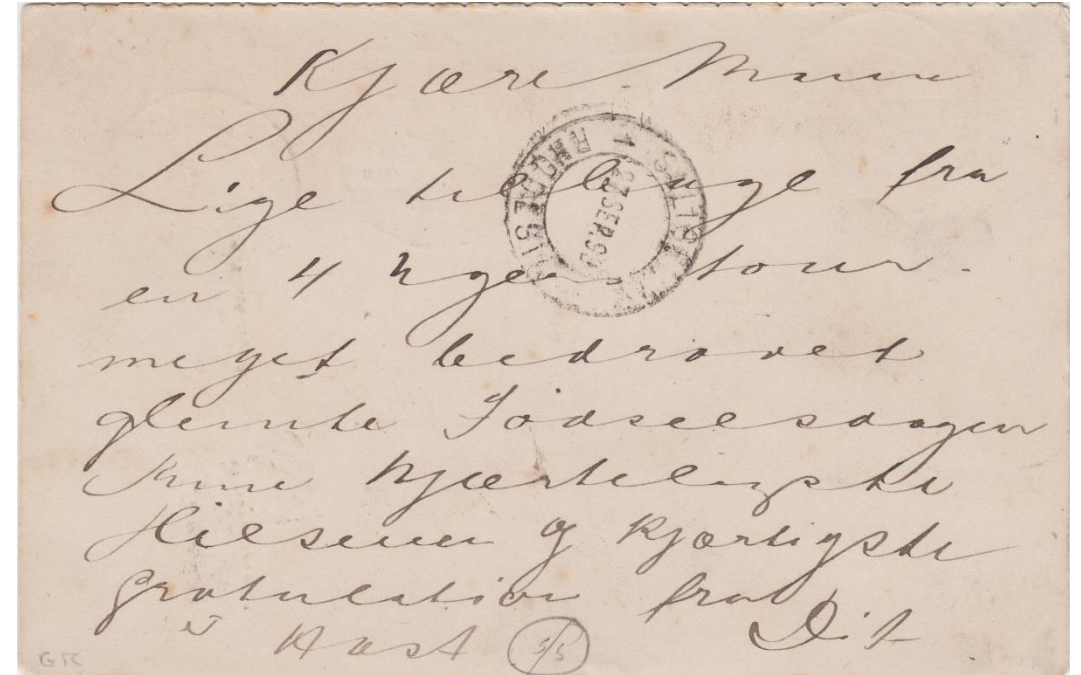 Kjære Mama
Lige tilbage fra
en 4 Ugers tour.
meget bedrøvet
glemte Fødselsdagen
hjærteligste
Hilsener og kjærligste
gratulation fra
Hast Dit
5/5
GR
RHODESIA
27 SEP. 9